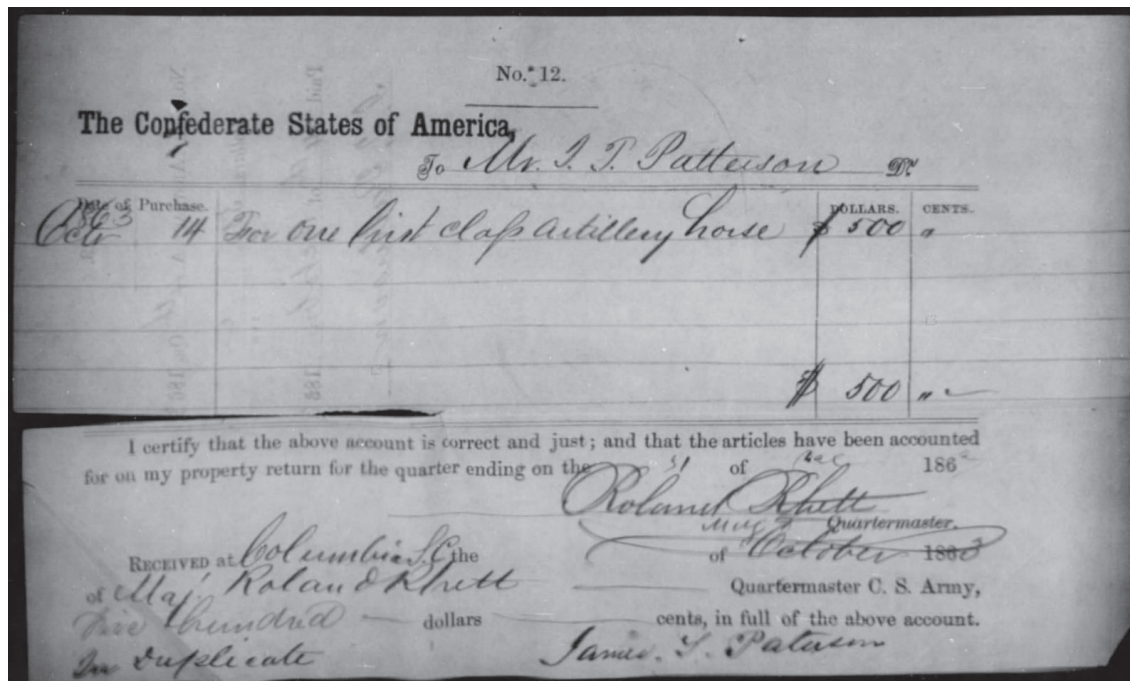 No. 12.
The Confederate States of America,
To Mr. J. T. Patterson Dr
Date of Purchase. DOLLARS. CENTS.
1863
Octr 14 For one first class Artillery horse $ 500 "
$ 500 "
I certify that the above account is correct and just; and that the articles have been accounted
for on my property return for the quarter ending on the 31 of Dec 186
Roland Rhett
Maj & Quartermaster.
RECEIVED at Columbia S.C. the of October 1863
of Maj Roland Rhett Quartermaster C. S. Army,
Five hundred dollars cents, in full of the above account.
In Duplicate James. T. Paterson